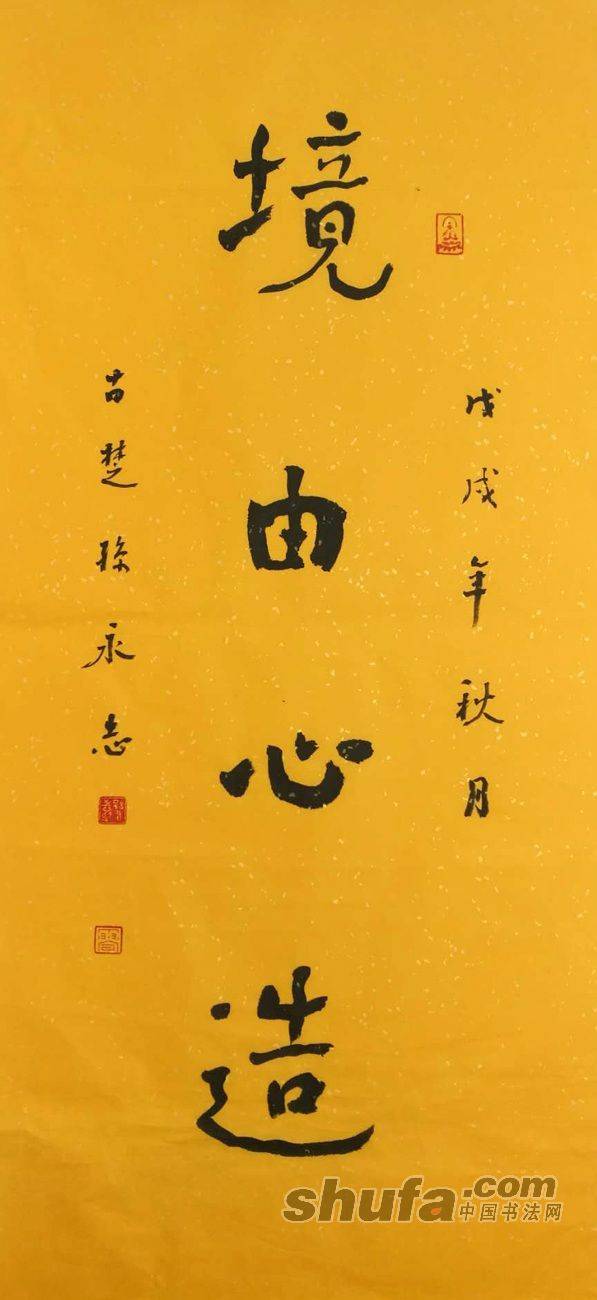 戊戌年秋月
境由心造
古楚孫永志
shufa.com
中国书法网